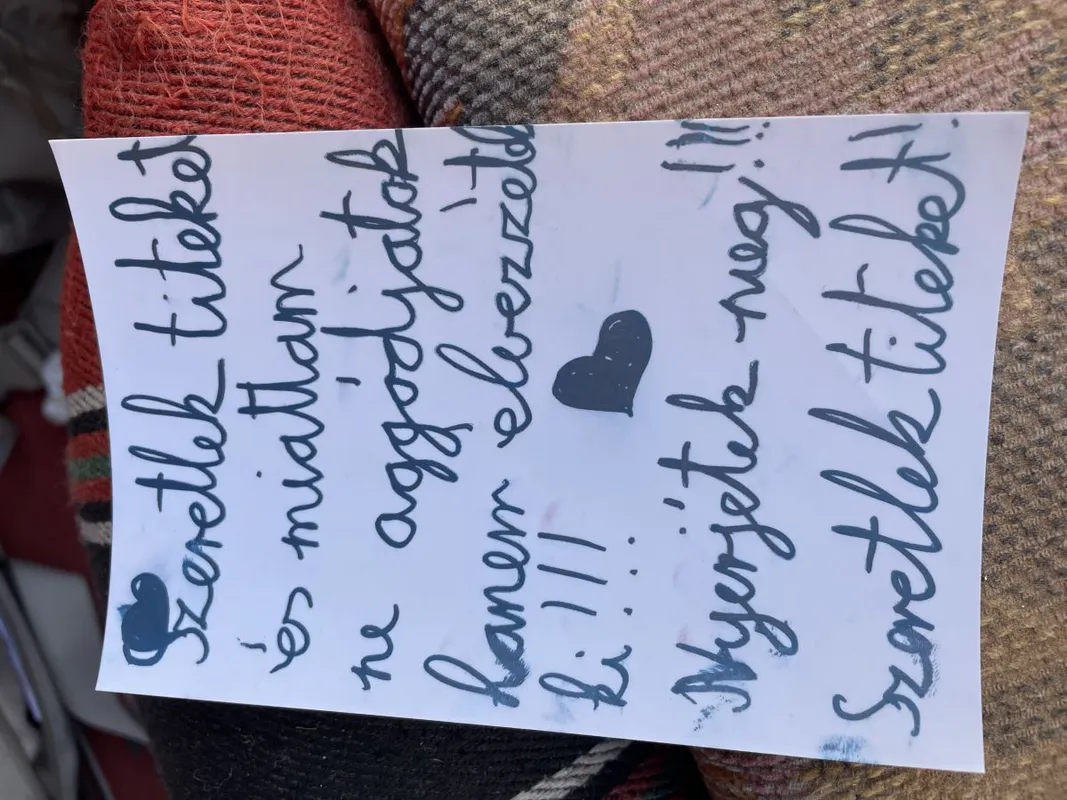 Szeretlek titeket
és miattam
ne aggódjatok
hanem élvezzétek
ki!!!
Nyerjétek meg!!!
Szeretlek titeket!!